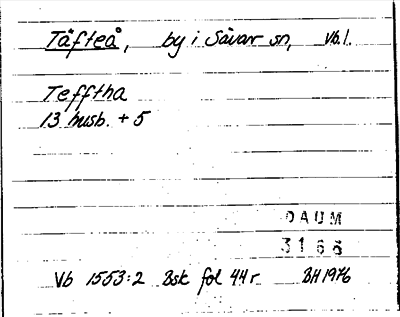 Täfteå, by i Sävar sn, Vb.l.
Tefftha
13 husb. + 5
DAUM
3166
Vb 1553:2 Bsk fol 44r BH 1976